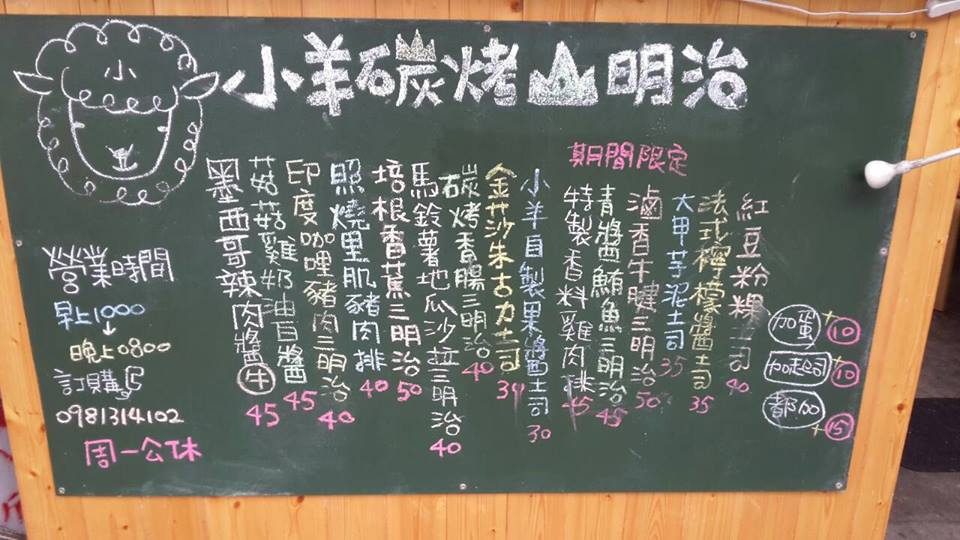 小羊碳烤山明治
小
期間限定
紅豆粉粿土司 40
法式檸檬醬土司 35
大甲芋泥土司 35
滷香牛腱三明治 50
青醬鮪魚三明治 45
特製香料雞肉排 45
小羊自製果醬土司 30
金莎朱古力土司 30
碳烤香腸三明治 40
馬鈴薯地瓜沙拉三明治 40
培根香蕉三明治 50
照燒里肌豬肉排 40
印度咖哩豬肉三明治 40
菇菇雞奶油白醬 45
墨西哥辣肉醬牛 45
加蛋+10
加起司+10
都加+15
營業時間
早上1000
↓
晚上0800
訂購
0981314102
周一公休